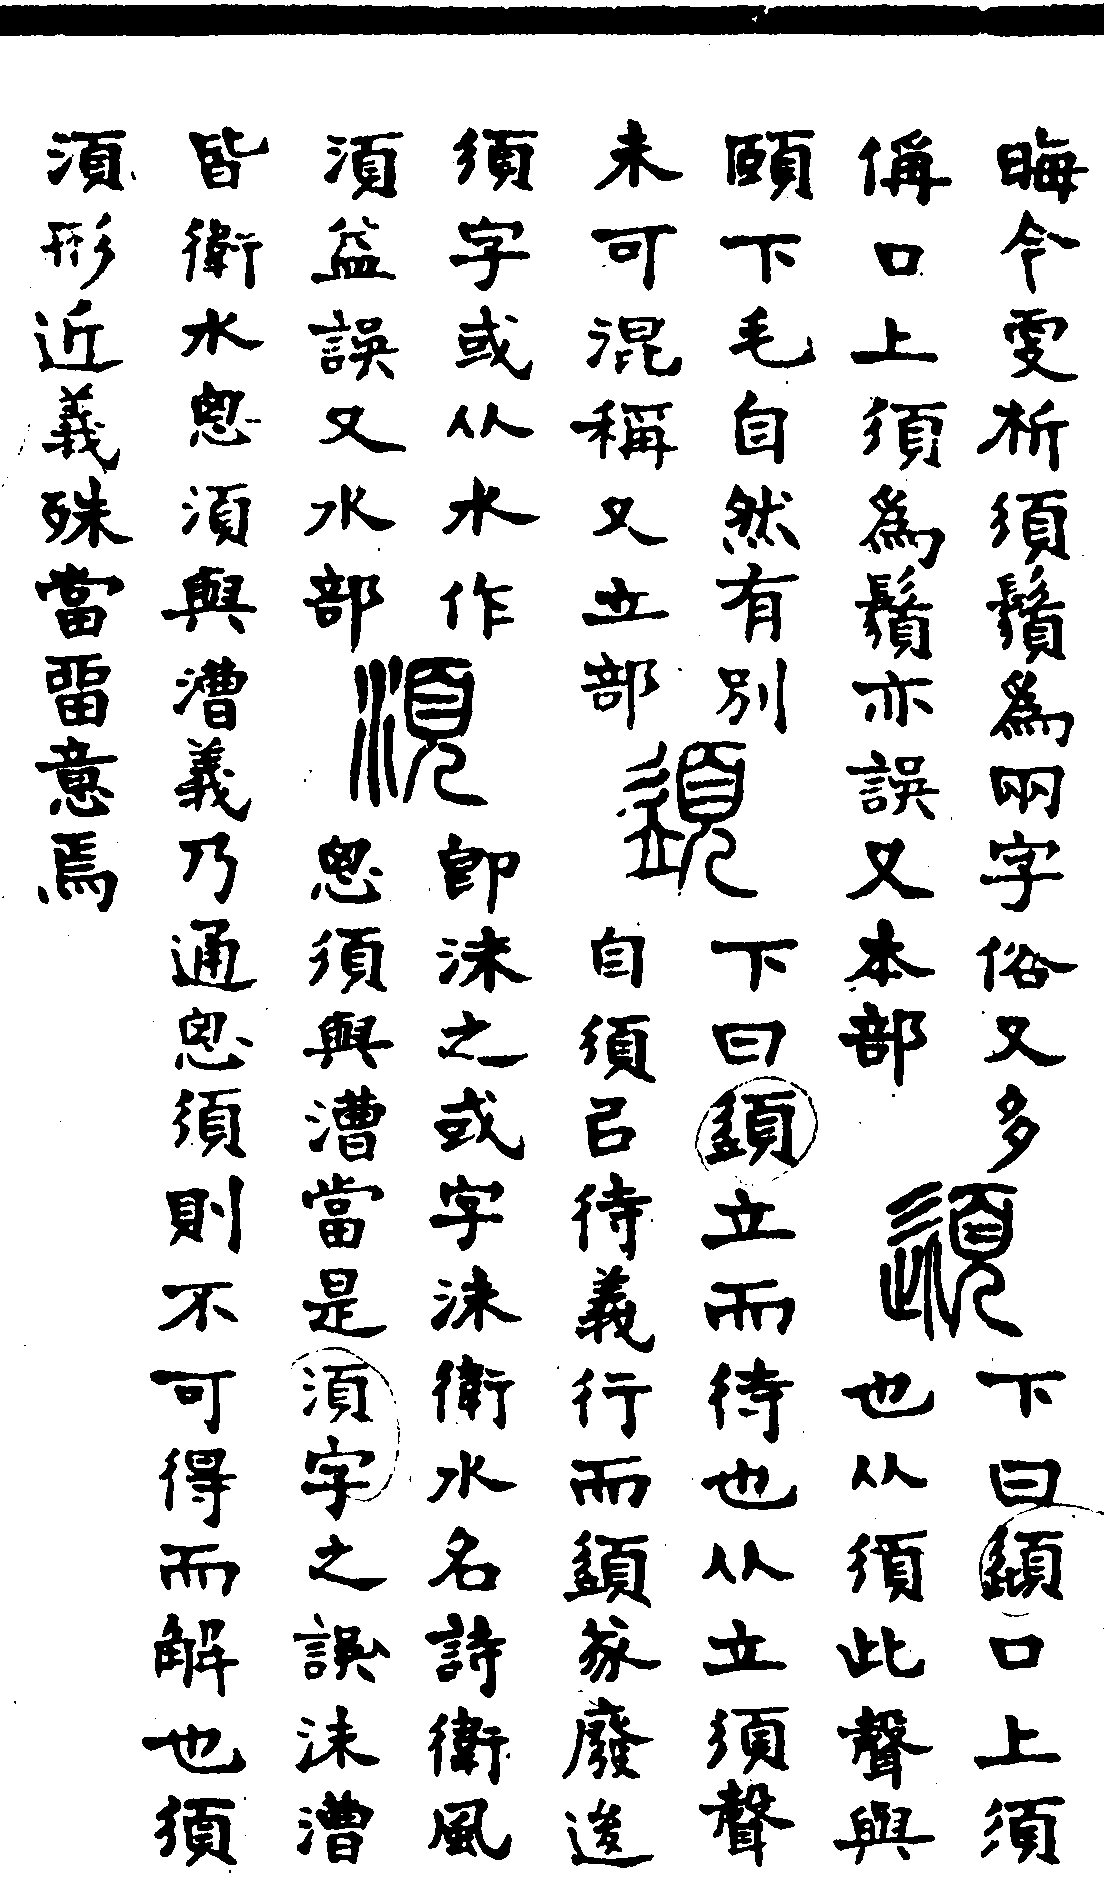 晦今析須鬚爲兩字俗又多
偁口上須爲鬚亦誤又本部
頾
下曰頾口上須
也从須此聲與
頤下毛自然有別
未可混稱又立部
䇓
下曰䇓立而待也从立須聲
自須㠯待義行而䇓篆廢逡
須字或从水作
湏益誤又水部
湏
即沬之或字沬衛水名詩衛風
思須與漕當是湏字之誤沬漕
皆衛水思湏與漕義乃通思須則不可得而解也須
湏形近義殊當畱意焉